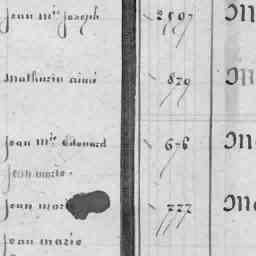 Jean Mie Joseph 2597 M
Mathurin aimé 870 M
Jean Mie Edouard 676 M
Jean marie
Jean marie 777 M
Jean marie